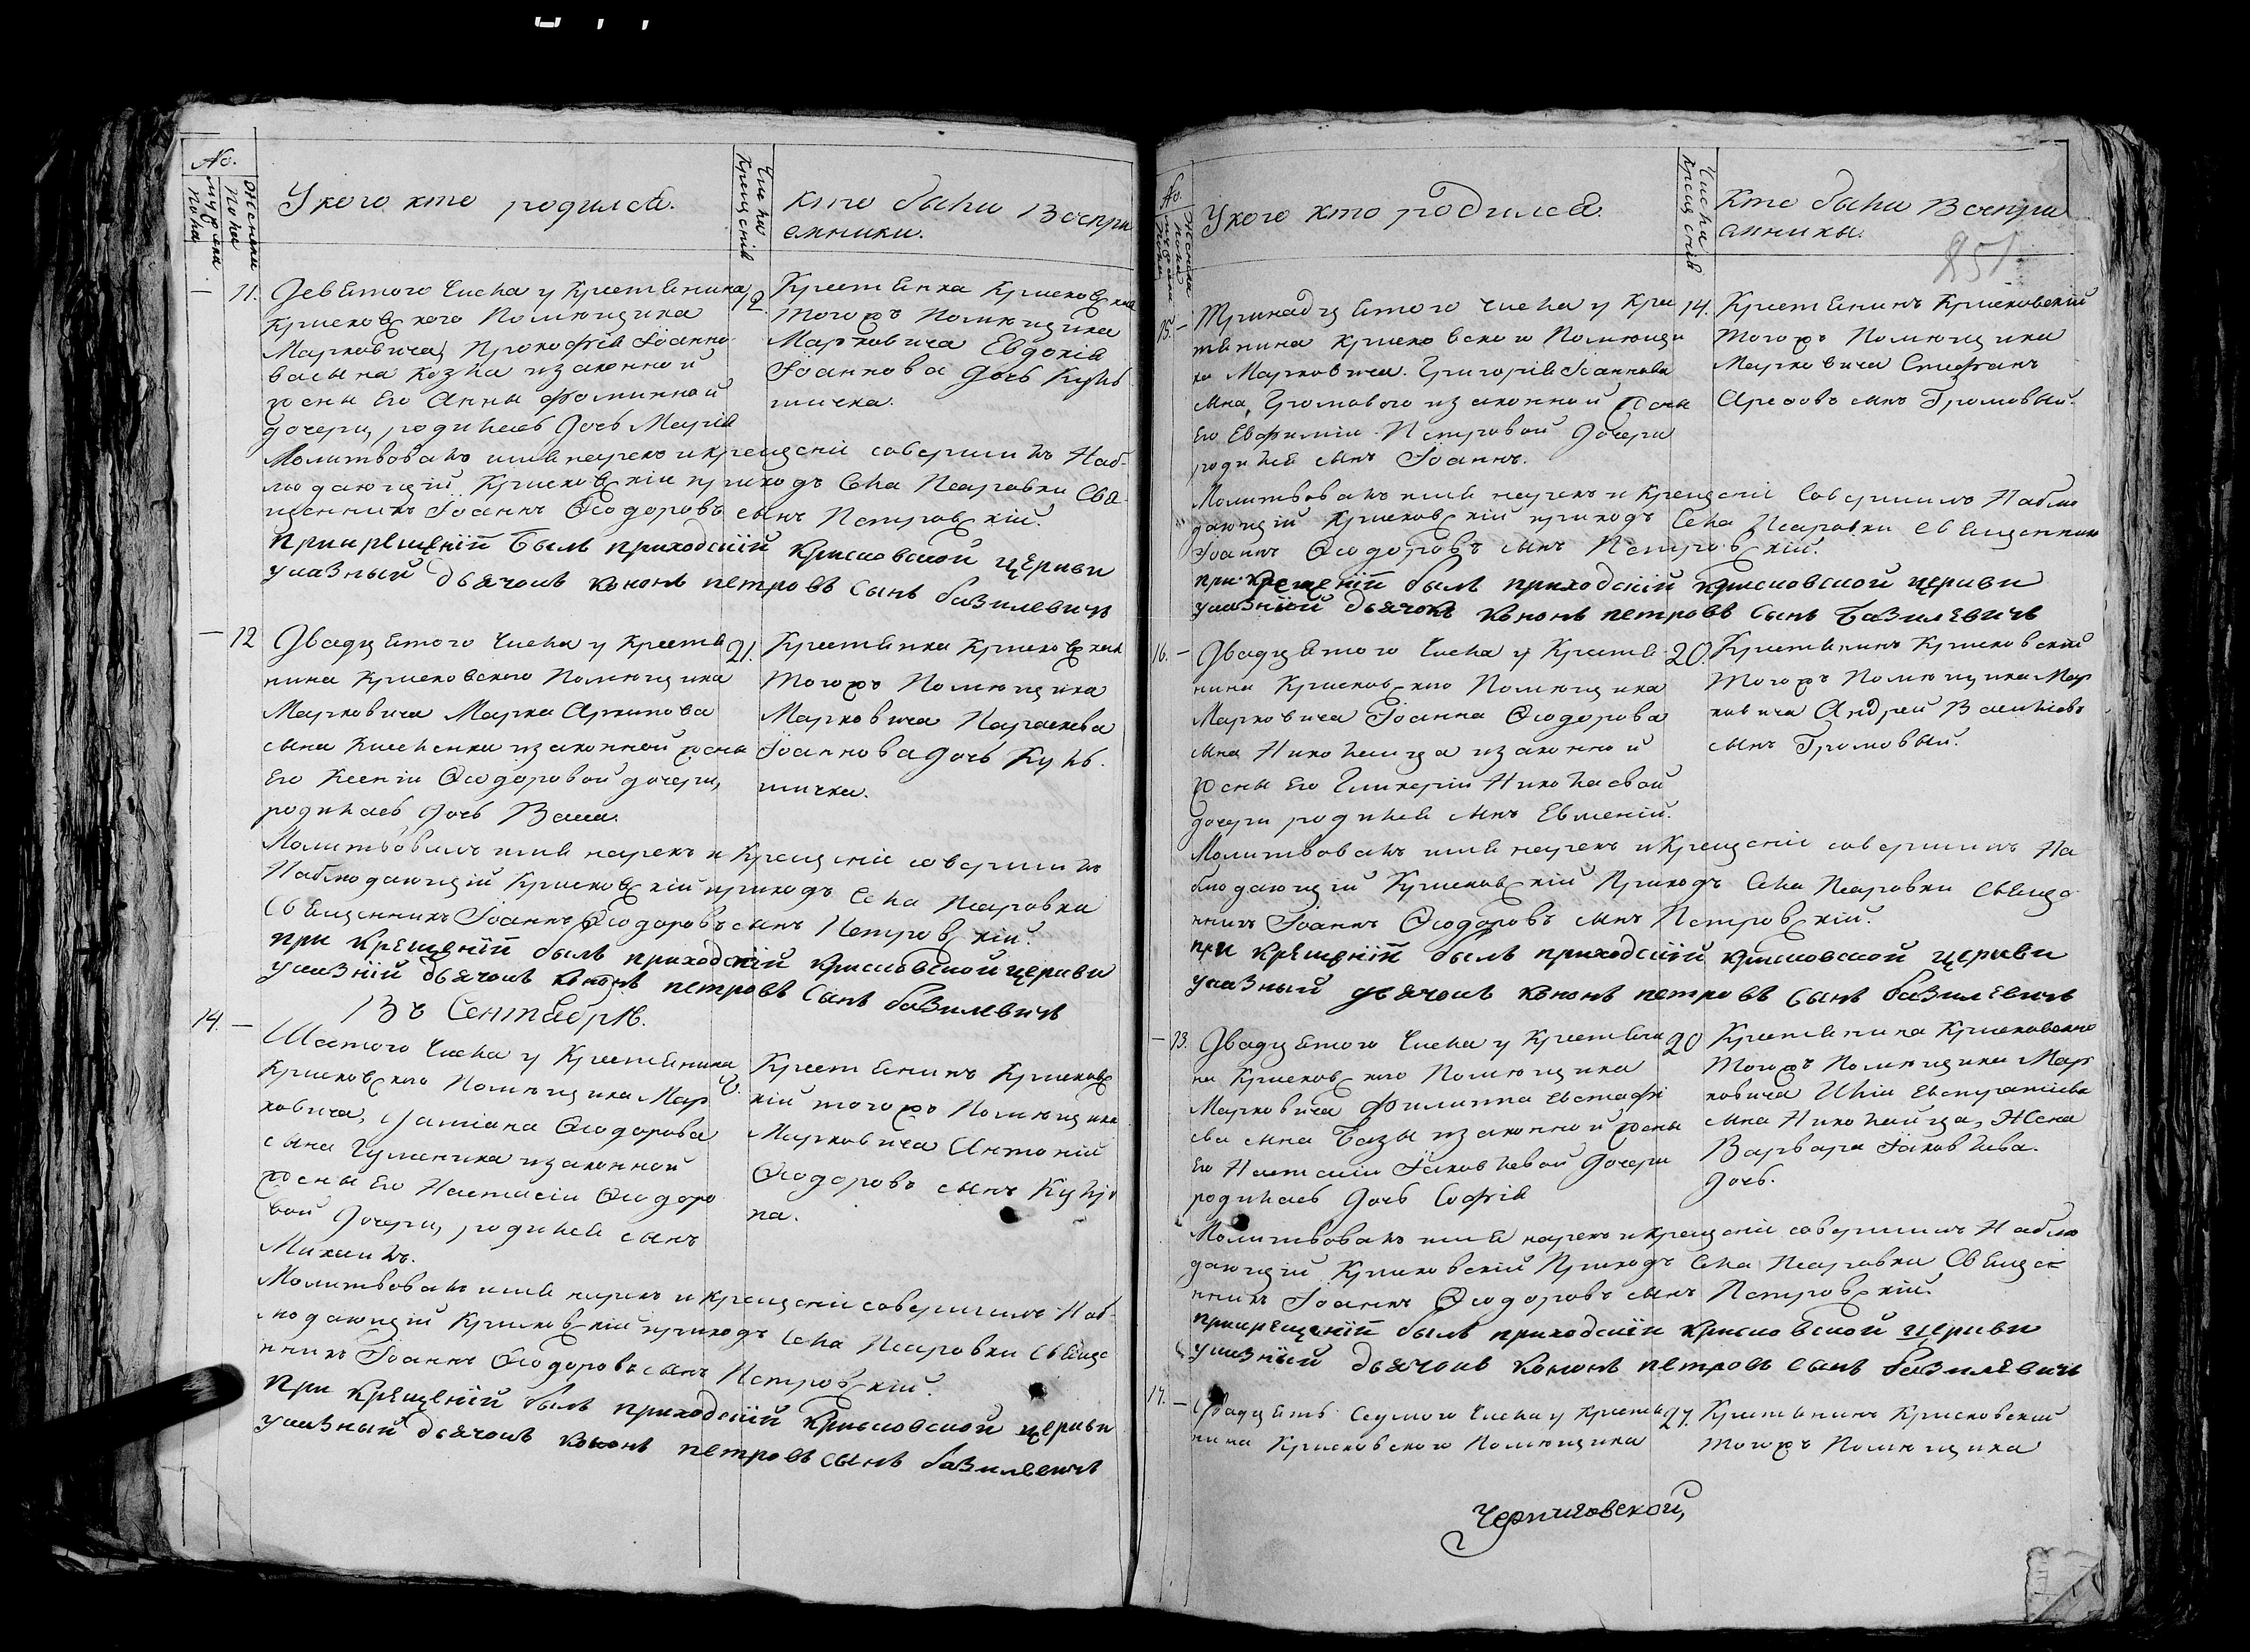 No.
Мужеска пола
Женска пола
У кого кто родился.
Числа крещенія
кто были воспри
емники.
— 11. Девятого числа у крестьянина
крисковского помѣщика
Марковича, Прокофія Іоанно
ва сына Козла изаконной
жены его Анны Фоминной
дочери, родилась дочь Марія
12. Крестьянка крисковская
тогожъ помѣщика
Марковича Евдокія
Іоаннова дочь Куль
шичка.
Молитвовалъ имя нарекъ и крещеніе совершилъ Наб-
людающій крисковскій приходъ села Псаровки свя-
щенникъ Іоаннъ Ѳеодоровъ сынъ Петровскій.
при крещеніи былъ приходскій крисковской церкви
указный дьячокъ кононъ петровъ сынъ базилевичъ
— 12 Двадцятого числа у крестья
нина крисковского помѣщика
Марковича Марка Архипова
сына Киселенка изаконной жены
его Ксеніи Ѳеодоровой дочери,
родилась дочь Васса.
21. Крестьянка крисковская
тогожъ помѣщика
Марковича Параскева
Іоаннова дочь Куль-
шичка.
Молитвовалъ имя нарекъ и крещеніе совершилъ
Наблюдающій крисковскій приходъ села Псаровки
священникъ Іоаннъ Ѳеодоровъ сынъ Петровскій.
при крещеніи былъ приходскій крисковской церкви
указній дьячокъ кононъ петровъ сынъ базилевичъ
Въ Сентябрѣ.
14. — Шестого числа у крестьянина
крисковского помѣщика Мар
ковича, Даміана Ѳеодорова
сына Гуменика изаконной
жены его Настасіи Ѳеодоро
вой дочери, родился сынъ
Михаилъ.
Крестьянинъ крисковс
кій тогожъ помѣщика
Марковича Антоній
Ѳеодоровъ сынъ
Молитвовалъ имя нарекъ и крещеніе совершилъ Наб-
людающій крисковскій приходъ села Псаровки свяще
нникъ Іоаннъ Ѳеодоровъ сынъ Петровскій.
при крещеніи былъ приходскій крисковской церкви
указный дьячокъ кононъ петровъ сынъ базилевичъ
No.
Мужеска пола
Женска пола
У кого кто родился
Числа крещенія
Кто были воспри
емники.
851
15. — Тринадцятого числа у кре
стянина крисковского помѣщи
ка Марковича. Григорія Іоаннова
сына, Громового изаконной жены
его Евфиміи Петровой дочери
родился сынъ Іоаннъ.
14. Крестьянинъ крисковскій
тогожъ помѣщика
Марковича Стефанъ
Арефовъ сынъ Громовый.
Молитвовалъ имя нарекъ и крещеніе совершилъ Наблю
дающій крисковскій приходъ села Псаровки священникъ
Іоаннъ Ѳеодоровъ сынъ Петровскій.
при крещеніи былъ приходскій крисковской церкви
указнїй дьячокъ кононъ петровъ сынъ базилевичъ
16. — Двадцятого числа у крестья
нина крисковского помѣщика
Марковича Іоанна Ѳеодорова
сына Николайца изаконной
жены его Гликеріи Николаевой
дочери родился сынъ Евменій.
20. Крестьянинъ крисковскій
тогожъ помѣщика Мар
ковича Андрей Васильевъ
сынъ Громовый.
Молитвовалъ имя нарекъ и крещеніе совершилъ На
блюдающій крисковскій приходъ села Псаровки свяще
нникъ Іоаннъ Ѳеодоровъ сынъ Петровскій.
при крещеніи былъ приходскій крисковской церкви
указный дьячокъ кононъ петровъ сынъ базилевичъ
— 13. Двадцятого числа у крестьяни
на крисковского помѣщика
Марковича Филиппа Евстафі
ева сына Базы изаконной жены
его Настасіи Яковлевой дочери
родилась дочь Софія
20 Крестьянина крисковского
тогожъ помѣщика Мар
ковича Иліи Евстратіева
сына Николайца, Жена
Варвара Яковлева
дочь.
Молитвовалъ имя нарекъ и крещеніе совершилъ Наблю
дающій крисковскій приходъ села Псаровки свяще
нникъ Іоаннъ Ѳеодоровъ сынъ Петровскій.
при крещеніи былъ приходскій крисковской церкви
указный дьячокъ кононъ петровъ сынъ базилевичъ
17. — Двадцять седмого числа у крестья
нина крисковского помѣщика
27. Крестьянинъ крисковскій
тогожъ помѣщика
Черниговской,